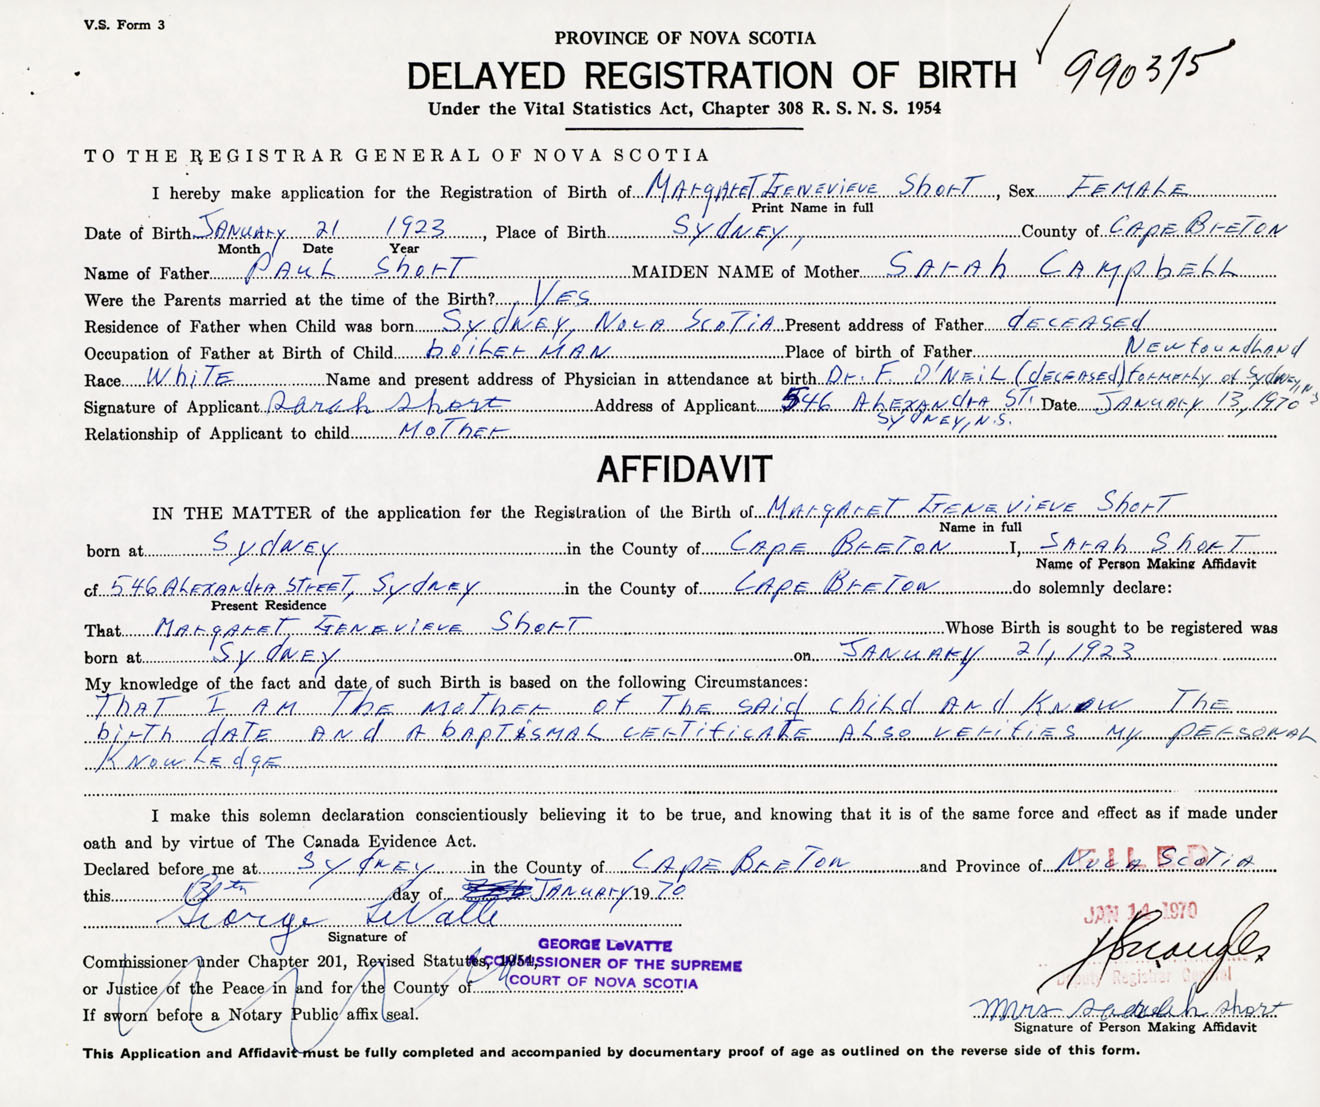 V.S. Form 3
PROVINCE OF NOVA SCOTIA
DELAYED REGISTRATION OF BIRTH
990315
Under the Vital Statistics Act, Chapter 308 R. S. N. S. 1954
TO THE REGISTRAR GENERAL OF NOVA SCOTIA
I hereby make application for the Registration of Birth of Margaret Genevieve Short, Sex Female
Print Name in full
Date of Birth January 21 1923, Place of Birth Sydney, County of Cape Breton
Month Date Year
Name of Father Paul Short MAIDEN NAME of Mother Sarah Campbell
Were the Parents married at the time of the Birth? Yes
Residence of Father when Child was born Sydney, Nova Scotia Present address of Father deceased
Occupation of Father at Birth of Child boiler man Place of birth of Father Newfoundland
Race White Name and present address of Physician in attendance at birth Dr. F. O'Neil (deceased) formerly of Sydney, N.S.
Signature of Applicant Sarah Short Address of Applicant 546 Alexandra St. Sydney, N.S. Date January 13, 1970
Relationship of Applicant to child Mother
AFFIDAVIT
IN THE MATTER of the application for the Registration of the Birth of Margaret Genevieve Short
Name in full
born at Sydney in the County of Cape Breton I, Sarah Short
Name of Person Making Affidavit
of 546 Alexandra Street, Sydney in the County of Cape Breton do solemnly declare:
Present Residence
That Margaret Genevieve Short Whose Birth is sought to be registered was
born at Sydney on January 21, 1923
My knowledge of the fact and date of such Birth is based on the following Circumstances:
That I am the mother of the said child and know the
birth date and a baptismal certificate also verifies my personal
knowledge
I make this solemn declaration conscientiously believing it to be true, and knowing that it is of the same force and effect as if made under
oath and by virtue of The Canada Evidence Act.
Declared before me at Sydney in the County of Cape Breton and Province of Nova Scotia
FILED
this 13th day of January 1970
George LeVatte
JAN 14 1970
Signature of
GEORGE LeVATTE
Commissioner under Chapter 201, Revised Statutes, 1954,
COMMISSIONER OF THE SUPREME
Deputy Registrar General
or Justice of the Peace in and for the County of
COURT OF NOVA SCOTIA
Mrs Sarah Short
If sworn before a Notary Public affix seal.
Signature of Person Making Affidavit
This Application and Affidavit must be fully completed and accompanied by documentary proof of age as outlined on the reverse side of this form.